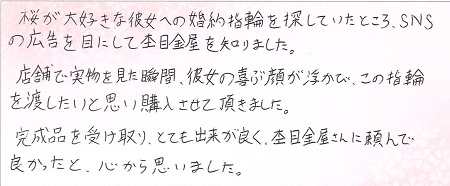 桜が大好きな彼女への婚約指輪を探していたところ、SNS
の広告を目にして杢目金屋を知りました。
店舗で実物を見た瞬間、彼女の喜ぶ顔が浮かび、この指輪
を渡したいと思い購入させて頂きました。
完成品を受け取り、とても出来が良く、杢目金屋さんに頼んで
良かったと、心から思いました。